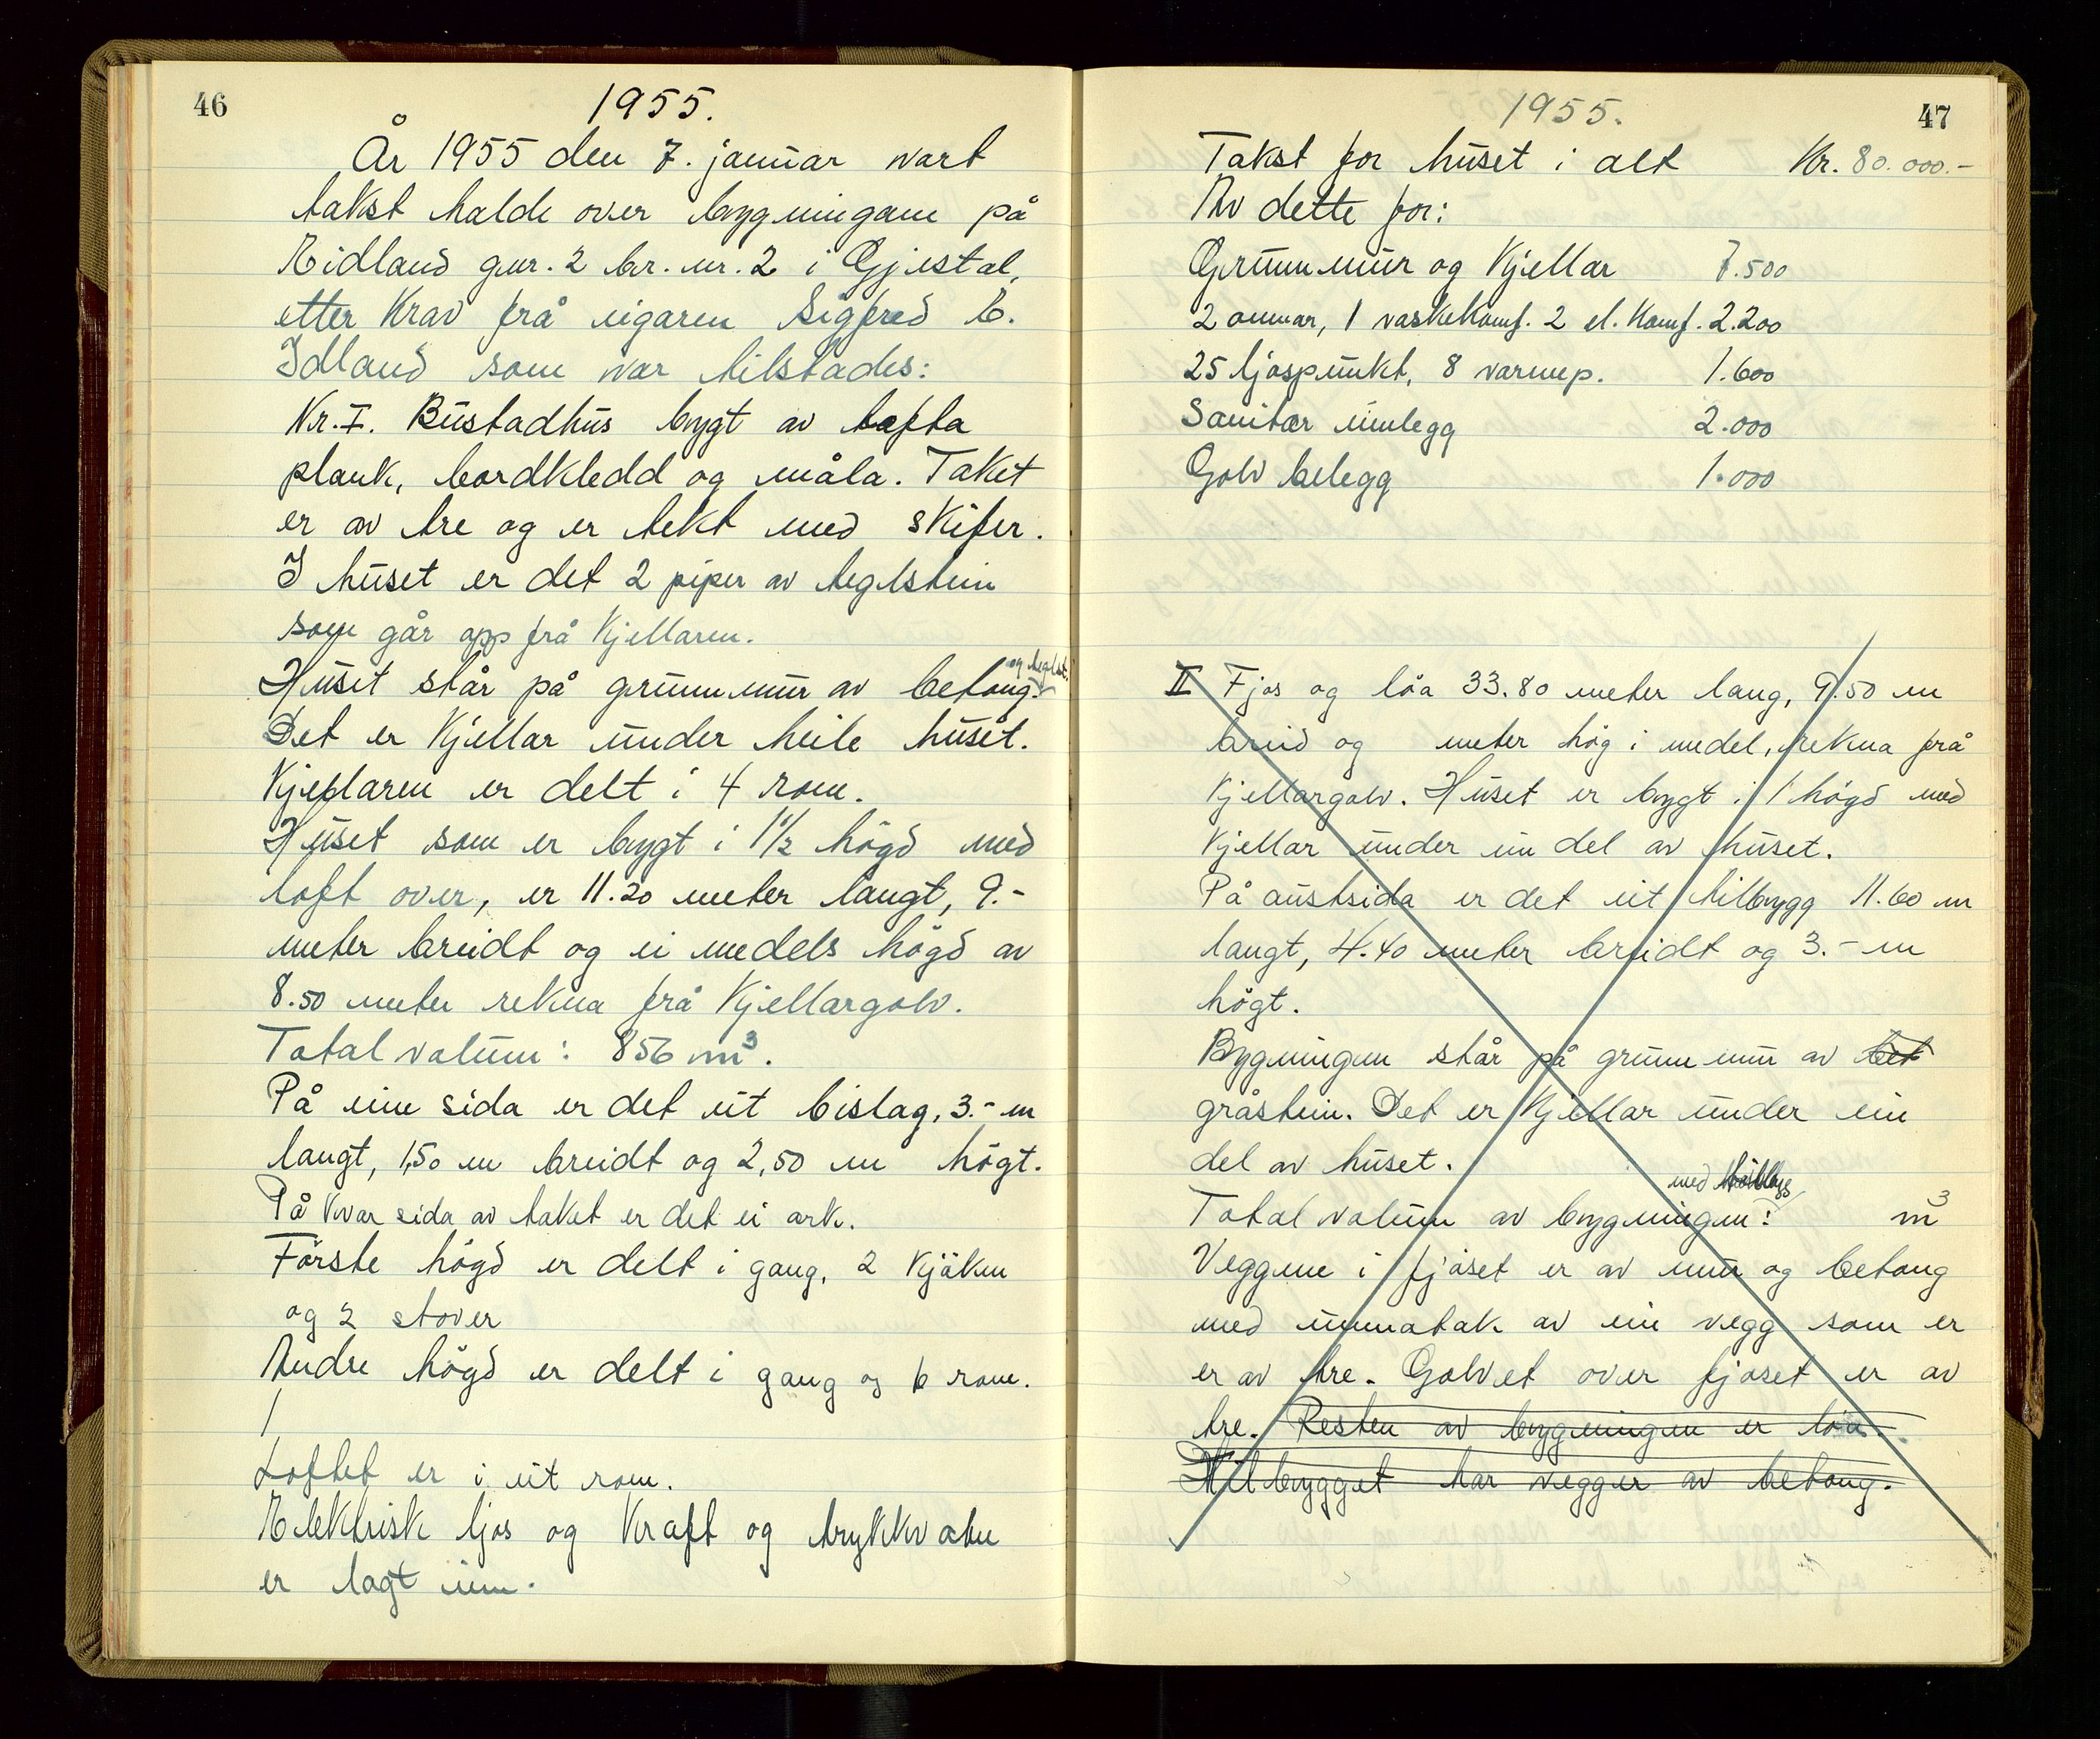 46
1955.
År 1955 den 7. januar vart
takst halde over bygningane på
Eidland gnr. 2 br. nr. 2 i Gjestal,
etter krav frå eigaren Sigfred E.
Idland som var tilstades:
Nr. I. Bustadhus bygt av tofta
plank, bordkledd og måla. Taket
er av tre og er tekt med skifer.
I huset er det 2 piper av teglstein
som går opp frå kjellaren.
og teglst.
Huset står på grunnmur av betong.
Det er kjellar under heile huset.
Kjellaren er delt i 4 rom.
Huset som er bygt i 1 1/2 högd med
loft over, er 11.20 meter langt, 9.-
meter breidt og ei medels högd av
8.50 meter rekna frå kjellargolv.
Total volum: 856 m³.
På eine sida er det eit bislag, 3.- m
langt, 1,50 m breidt og 2,50 m högt.
På kvar sida av taket er det ei ark.
Förste högd er delt i gang, 2 kjöken
og 2 stover
Andre högd er delt i gang og 6 rom.
Loftet er i eit rom.
Elektrisk ljos og kraft og trykkvatn
er lagt inn.
1955.
47
Takst for huset i alt Kr. 80.000.-
Av dette for:
Grunnmur og kjellar 7.500
2 omnar, 1 vaskekomf. 2 el. komf. 2.200
25 ljospunkt, 8 varmep. 1.600
Sanitær innlegg 2.000
Golv belegg 1.000
II Fjos og löa 33.80 meter lang, 9.50 m
breid og meter hög i medel, rekna frå
kjellargolv. Huset er bygt i 1 högd med
kjellar under ein del av huset.
På austsida er det eit tilbygg 11.60 m
langt, 4.40 meter breidt og 3.- m
högt.
Bygningen står på grunnmur av bet
gråstein. Det er kjellar under ein
del av huset.
med tilbygg
Total volum av bygningen: m³
Veggene i fjöset er av mur og betong
med unnatak av ein vegg som er
er av tre. Golvet over fjoset er av
tre. Resten av bygningen er löa.
Tilbygget har vegger av betong.